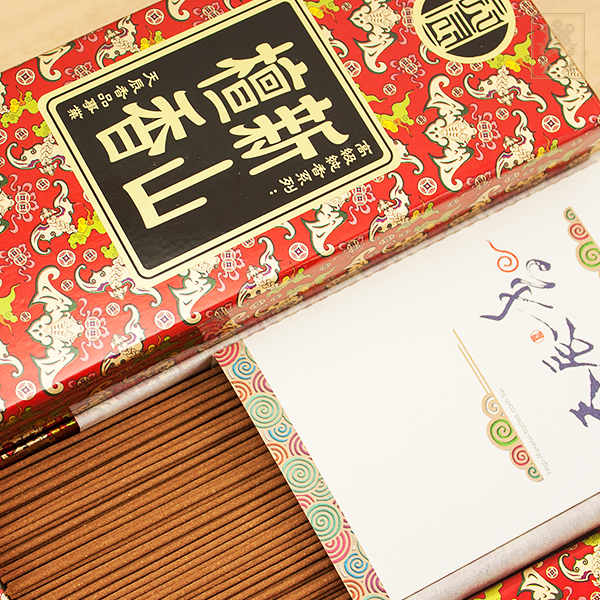 高級純香系列:
新山
檀香
天辰香品事業